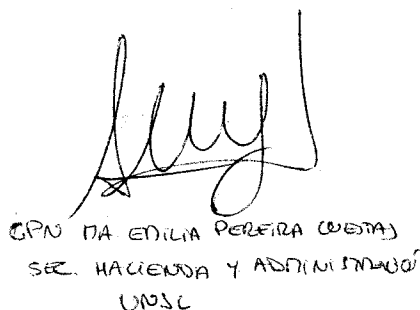 CPN MA EMILIA PEREIRA CUESTAS
SEC. HACIENDA Y ADMINISTRACIÓ
UNSL